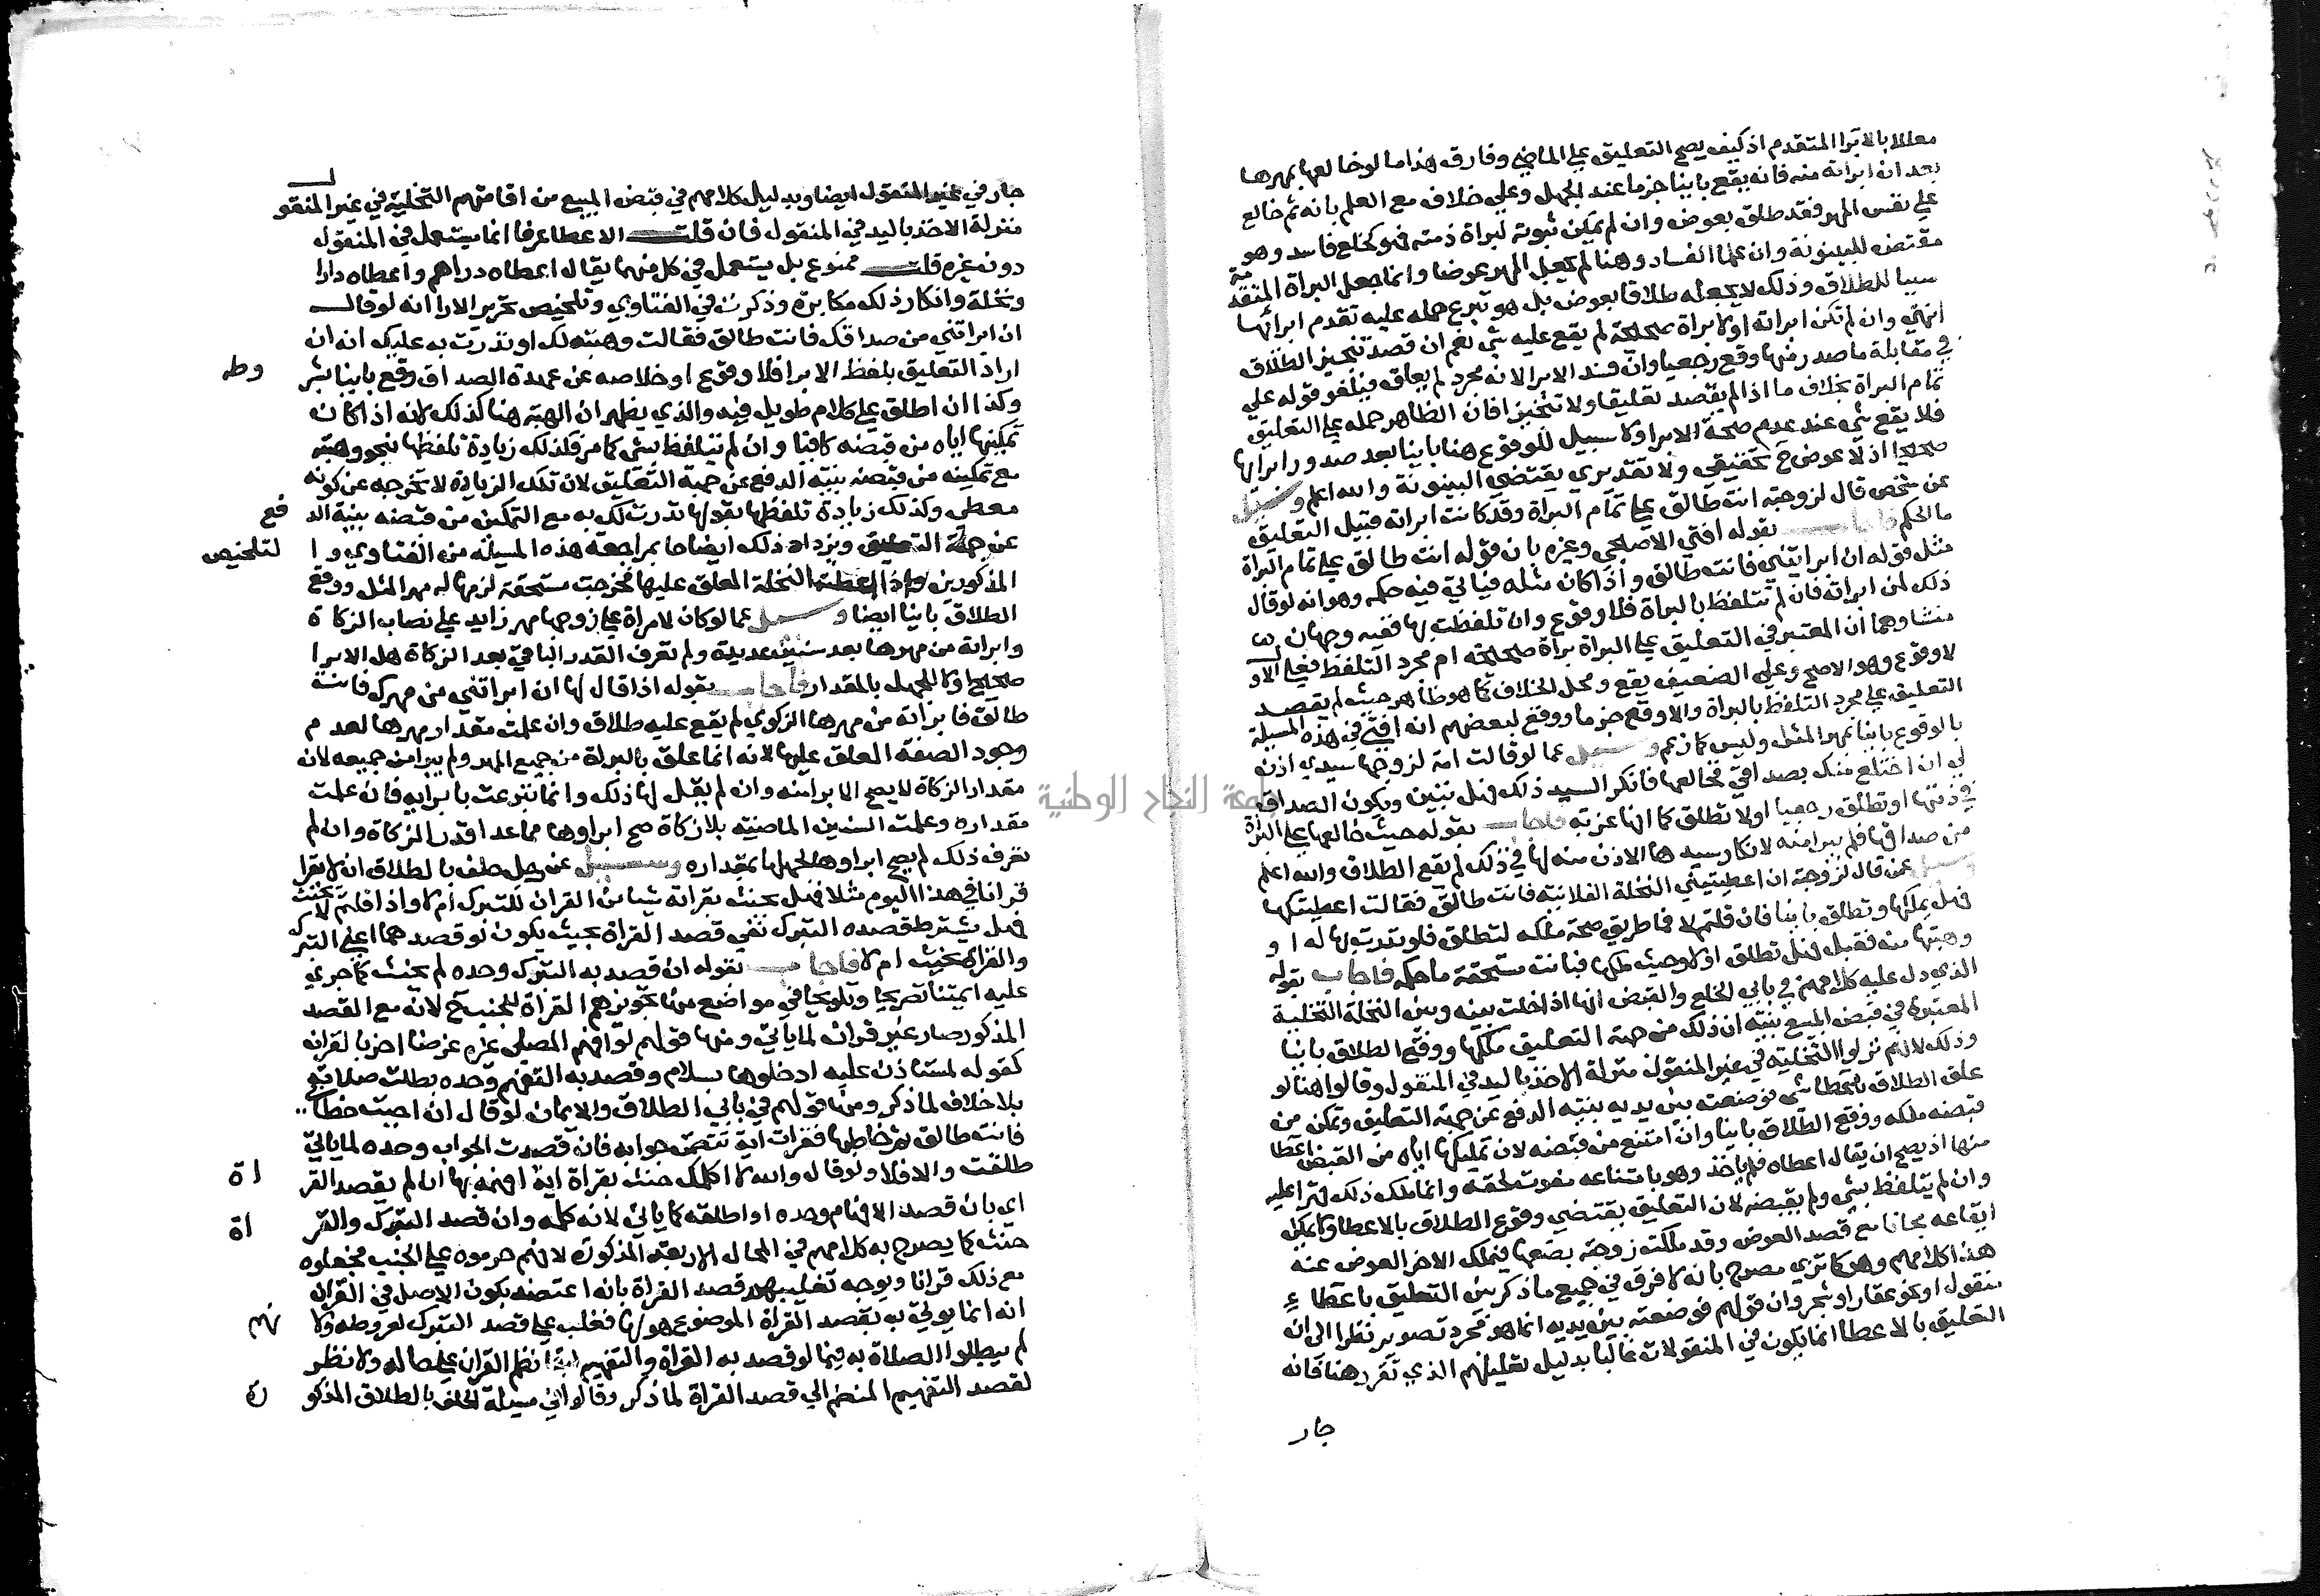 معللا بالابرا المتقدم اذ كيف يصح التعليق علي الماضي وفارق هذا ما لو خالعها بمهرها
بعد ان ابراته منه فانه يقع باينا جزما عند الجهل وعلي خلاف مع العلم بانه ثم خالع
علي نفس المهر فقد طلق بعوض وان لم يمكن ثبوته لبراة ذمته فهو كخلع فاسد وهو
مقتض للبينونة وان علما الفساد وهنا لم يجعل المهر عوضا وانما جعل البراة المتقد مة
سببا للطلاق وذلك لا يجعله طلاقا بعوض بل هو تبرع حمله عليه تقدم ابرائها
انتهي وان لم تكن ابراته او لا براة صحيحة لم يقع عليه شي نعم ان قصد تنجيز الطلاق
في مقابلة ما صدر منها وقع رجعيا وان فسد الابرا لانه مجرد لم يعلق فيلغو قوله علي
تمام البراة بخلاف ما اذا لم يقصد تعليقا ولا تنجيزا فان الظاهر حمله علي التعليق
فلا يقع شي عند عدم صحة الابرا ولا سبيل للوقوع هنا باينا بعد صدور ابرايها
صحيحا اذ لا عوض ح حقيقي ولا تقديري يقتضي البينونة والله اعلم وسيل
عن شخص قال لزوجته انت طالق علي تمام البراة وقد كانت ابراته قبيل التعليق
ما الحكم فاجاب بقوله افتي الاصبحي وغيره بان قوله انت طالق علي تمام البراة
مثل قوله ان ابرايتني فانت طالق واذا كان مثله فياتي فيه حكمه وهو انه لو قال
ذلك لمن ابراته فان لم تتلفظ بالبراة فلا وقوع وان تلفظت بها ففيه وجهان
منشاوهما ان المعتبر في التعليق علي البراة براة صحيحة ام مجرد التلفظ فعلي الاو ل
لا وقوع وهو الاصح وعلي الضعيف يقع ومحل الخلاف كما هو ظاهر حيث لم يقصد
التعليق علي مجرد التلفظ بالبراة والا وقع جزما ووقع لبعضهم انه افتي في هذه المسيلة
بالوقوع باينا بمهر المثل وليس كما زعم وسيل عما لو قالت امة لزوجها سيدي اذن
لي ان اختلع منك بصداقي فخالعها فانكر السيد ذلك فهل تبين ويكون الصداق
في ذمتها او تطلق رجعيا او لا تطلق كما انها غرته فاجاب بقوله حيث خالعها علي البراة
من صداقها فلم يبرا منه لانكار سيدها الاذن منه لها في ذلك لم يقع الطلاق والله اعلم
وسيل عمن قال لزوجته ان اعطيتيني النخلة الفلانية فانت طالق فقالت اعطيتكها
فهل يملكها وتطلق باينا فان قلتم لا فما طريق صحة ملكه لتطلق فلو نذرت بها له او
وهبتها منه فقبل فهل تطلق او لا وحيث ملكها فبانت مستحقة ما حكمه فاجاب بقوله
الذي دل عليه كلامهم في بابي الخلع والقبض انها اذا خلت بينه وبين النخلة التخلية
المعتبرة في قبض المبيع بنية ان ذلك من جهة التعليق ملكها ووقع الطلاق باينا
وذلك لانهم نزلوا التخلية في غير المنقول منزلة الاخذ باليد في المنقول وقالوا هنا لو
علق الطلاق باعطا شي فوضعته بين يديه بنية الدفع عن جهة التعليق وتمكن من
قبضه ملكه ووقع الطلاق باينا وان امتنع من قبضه لان تمكينها اياه من القبض اعطا
منها اذ يصح ان يقال اعطاه فلم ياخذ وهو بامتناعه مفوت لحقه وانما ملك ذلك قهرا عليه
وان لم يتلفظ بشي ولم يقبضه لان التعليق يقتضي وقوع الطلاق بالاعطا ولا يمكن
ايقاعه مجانا مع قصد العوض وقد ملكت زوجته بضعها فيملك الاخر العوض عنه
هذا كلامهم وهو كما تري مصرح بانه لا فرق في جميع ما ذكر بين التعليق باعطاء
منقول او نحو عقار او شجر وان قولهم فوضعته بين يديه انما هو مجرد تصوير نظرا الي ان
التعليق بالاعطا انما يكون في المنقولات غالبا بدليل تعليلهم الذي تقرر هنا فانه
جار
جار في غير المنقول ايضا وبدليل كلامهم في قبض المبيع من اقامتهم التخلية في غير المنقو ل
منزلة الاخذ باليد في المنقول فان قلت الاعطا عرفا انما يستعمل في المنقول
دون غيره قلت ممنوع بل يستعمل في كل منهما يقال اعطاه دراهم واعطاه دارا
ونخلة وانكار ذلك مكابرة وذكرت في الفتاوي وتلخيص تحرير الارا انه لو قال
ان ابراتني من صداقك فانت طالق فقالت وهبته لك او نذرت به عليك انه ان
اراد التعليق بلفظ الابرا فلا وقوع او خلاصه عن عهدة الصداق وقع باينا بشر وطه
وكذا ان اطلق علي كلام طويل فيه والذي يظهر ان الهبة هنا كذلك لانه اذا كان
تمكينها اياه من قبضه كافيا وان لم تتلفظ بشي كما مر فكذلك زيادة تلفظها بنحو وهبته
مع تمكينه من قبضه بنية الدفع عن جهة التعليق لان تلك الزيادة لا تخرجه عن كونه
معطي وكذلك زيادة تلفظها بقولها نذرت لك به مع التمكين من قبضه بنية الد فع
عن جهة التعليق ويزداد ذلك ايضاحا بمراجعة هذه المسيلة من الفتاوي وا لتلخيص
المذكورين واذا اعطته النخلة المعلق عليها فخرجت مستحقة لزمها له مهر المثل ووقع
الطلاق باينا ايضا وسيل عما لو كان لامراة علي زوجها مهر زايد علي نصاب الزكاة
وابراته من مهرها بعد سنين عديدة ولم تعرف القدر الباقي بعد الزكاة هل الابرا
صحيح او لا للجهل بالمقدار فاجاب بقوله اذا قال لها ان ابراتني من مهرك فانت
طالق فابراته من مهرها الزكوي لم يقع عليه طلاق وان علمت مقدار مهرها لعدم
وجود الصفة المعلق عليها لانه انما علق بالبراة من جميع المهر ولم يبرا من جميعه لان
مقدار الزكاة لا يصح الابرا منه وان لم يقل لها ذلك وانما تبرعت بابرايه فان علمت
مقداره وعلمت السنين الماضية بلا زكاة صح ابراوها مما عدا قدر الزكاة وان لم
تعرف ذلك لم يصح ابراوها لجهلها بمقداره وسيل عن رجل حلف بالطلاق انه لا يقرا
قرانا في هذا اليوم مثلا فهل يحنث بقراته شيا من القران للتبرك ام لا واذا قلتم لا يحنث
فهل يشترط قصده التبرك نفي قصد القراة بحيث يكون لو قصدهما اعني التبرك
والقراة يحنث ام لا فاجاب بقوله ان قصد به التبرك وحده لم يحنث كما جري
عليه ايمتنا تصريحا وتلويحا في مواضع منها تجويزهم القراة للجنب ح لانه مع القصد
المذكور صار غير قران لما ياتي ومنها قولهم لو افهم المصلي غيره غرضا اخر بالقران
كقوله لمستاذن عليه ادخلوها بسلام وقصد به التفهيم وحده بطلت صلاته
بلا خلاف لما ذكر ومنها قولهم في بابي الطلاق والايمان لو قال ان اجبت خطا..
فانت طالق ثم خاطبها فقرات اية تتضمن جوابه فان قصدت الجواب وحده لما ياتي
طلقت والا فلا ولو قال والله لا اكلمك حنث بقراة اية افهمه بها ان لم يقصد القر اة
اي بان قصد الافهام وحده او اطلق كما ياتي لانه كلمه وان قصد التبرك والقر اة
حنث كما يصرح به كلامهم في المحال الاربعة المذكورة لانهم حرموه علي الجنب فجعلوه
مع ذلك قرانا ويوجه تغليبهم قصد القراة بانه اعتضد بكون الاصل في القران
انه انما يوتي به بقصد القراة الموضوع هو لها فغلب علي قصد التبرك لعروضه ولا نهم
لم يبطلوا الصلاة به فيما لو قصد به القراة والتفهيم ابقا نظم القران علي حاله ولا نظر
لقصد التفهيم المنضم الي قصد القراة لما ذكر وقالوا في مسيلة الحلف بالطلاق المذكو رة
جامعة النجاح الوطنية